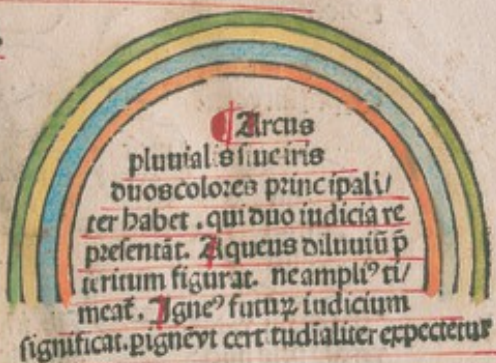 ¶ Arcus
pluuialis siue iris
duos colores principali/
ter habet . qui duo iudicia re
presentāt. Aqueus diluuiū p̄
teritum figurat. ne ampliꝰ ti/
meat̄. Igneꝰ futuꝝ iudicium
significat. ꝑ ignē vt certitudialiter expectetur